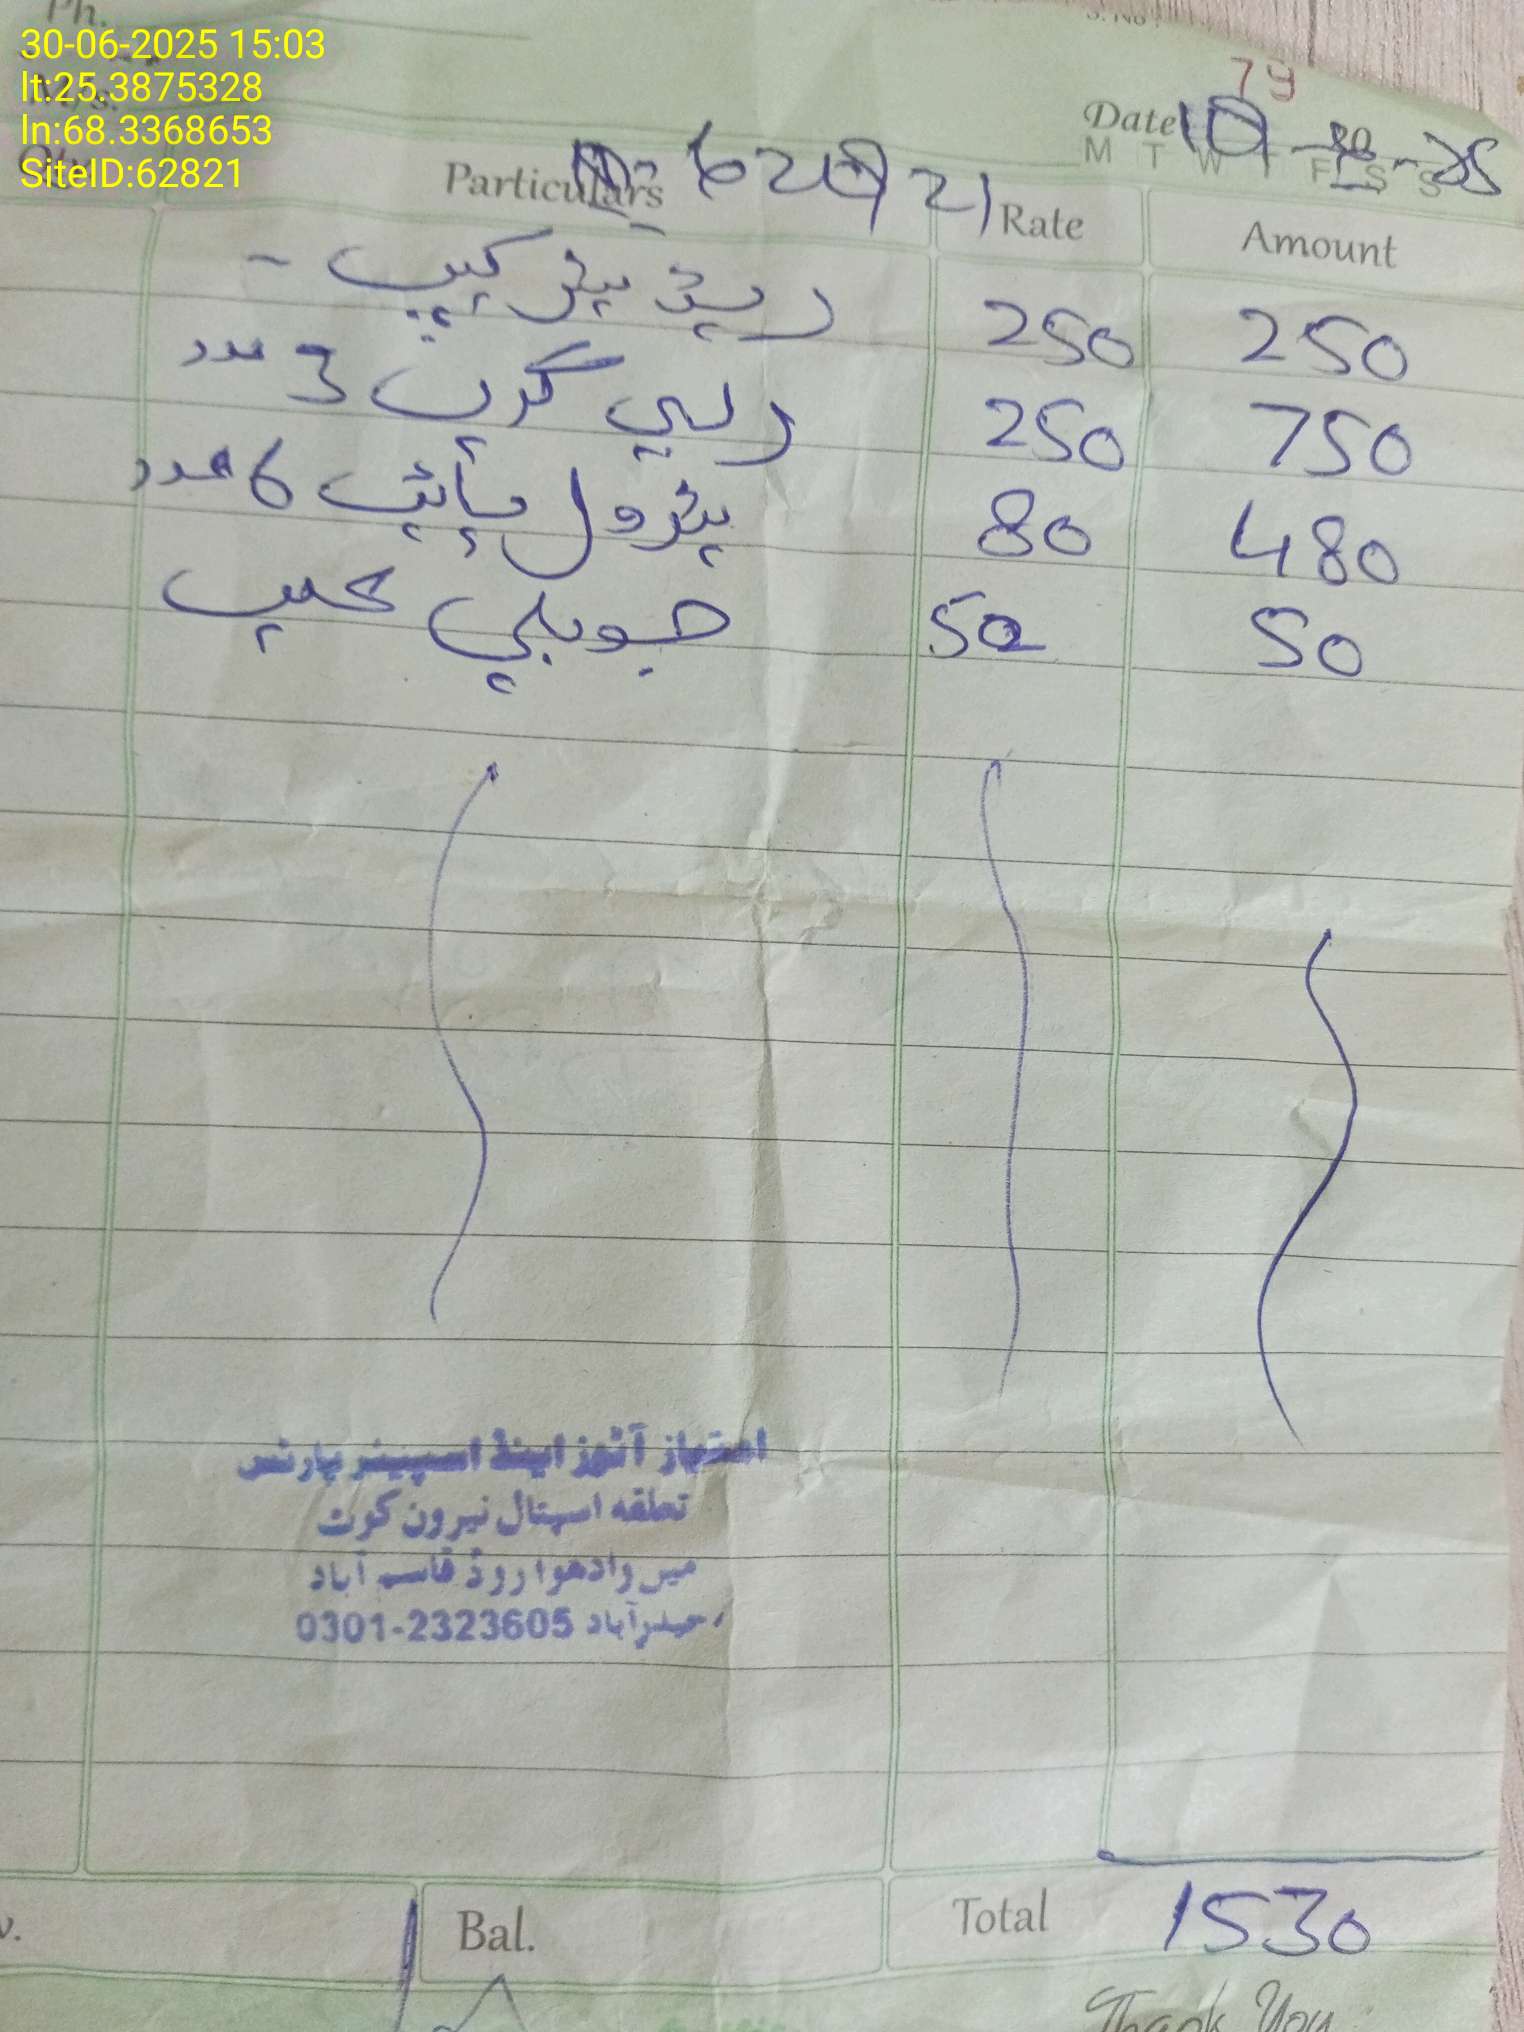 Ph.
30-06-2025 15:03
lt:25.3875328
ln:68.3368653
SiteID:62821
S. No
79
Date
M T W T F S S
Particulars
Rate
Amount
ریڈیٹر کیپ - 250 250
3 عدد 250 750
پٹرول پائپ 6 عدد 80 480
50 50
امتیاز آٹوز اینڈ اسپیئر پارٹس
تعلقہ اسپتال نیرون کوٹ
میں وادھوا روڈ قاسم آباد
حیدرآباد 0301-2323605
Bal.
Total 1530
Thank You